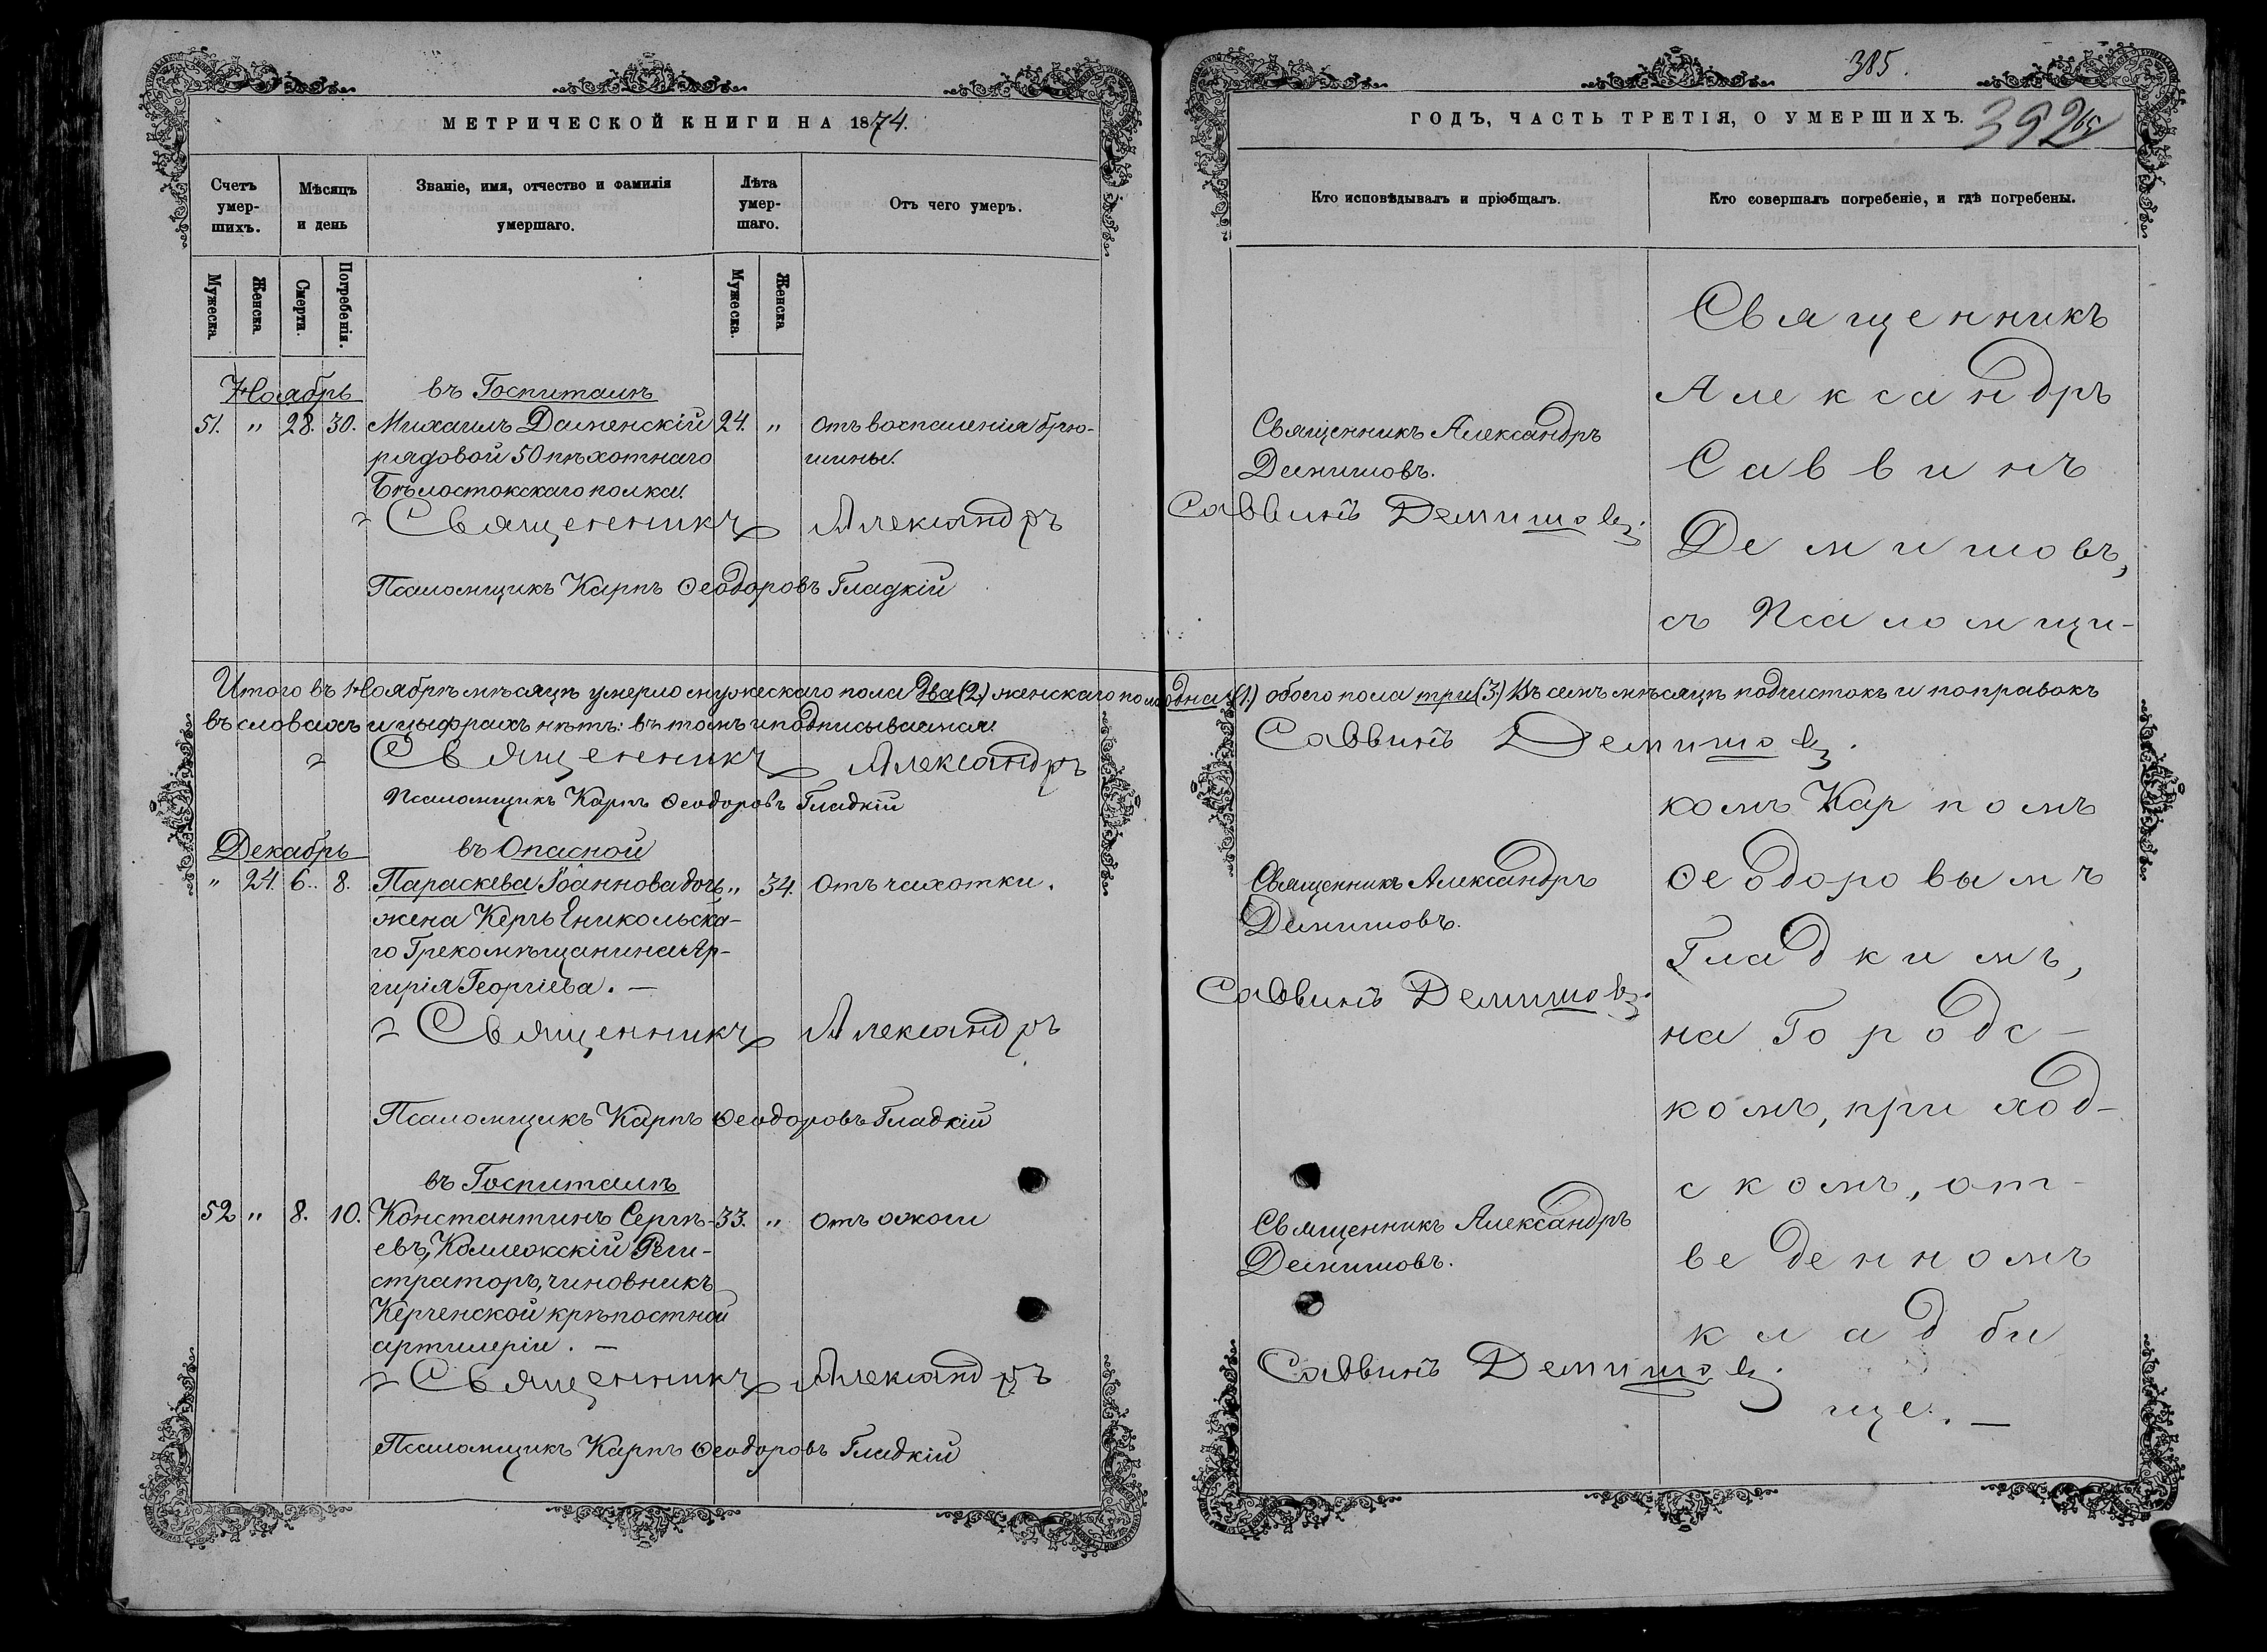 МЕТРИЧЕСКОЙ КНИГИ НА 1874.
Счетъ умер-шихъ.
Мѣсяцъ и день
Званіе, имя, отчество и фамилія умершаго.
Лѣта умер-шаго.
Отъ чего умеръ.
Мужеска.
Женска
Смерти.
Погребенія.
Мужеска.
Женска
Ноябрь
въ Госпиталѣ
51. " 28. 30. Михаилъ 24. " отъ воспаленія брю-
рядовой 50 пѣхотнаго
шины.
Бѣлостокскаго полка.
Священникъ Александръ
Псаломщикъ Карпъ Ѳеодоровъ Гладкій
Итого въ Ноябрѣ мѣсяцѣ умерло мужескаго пола Два (2) женскаго пола одна (1) обоего пола три (3) Въ семъ мѣсяцѣ подчистокъ и поправокъ
въ словахъ и цыфрахъ нѣтъ: въ томъ и подписываемся.
Священникъ Александръ
Псаломщикъ Карпъ Ѳеодоровъ Гладкій
Декабрь
въ Опасной
" 24. 6. 8. Параскева Іоаннова дочь, " 34. Отъ чахотки.
жена Керчь Еникольска-
го Грекомѣщанина Ар-
гирія Георгіева. —
Священникъ Александръ
Псаломщикъ Карпъ Ѳеодоровъ Гладкій
въ Госпиталѣ
52 " 8. 10. Константинъ Сергѣ- 33. " отъ ожоги
евъ, Коллежскій Реги-
страторъ, чиновникъ
Керченской крѣпостной
артилеріи. —
Священникъ Александръ
Псаломщикъ Карпъ Ѳеодоровъ Гладкій
385.
ГОДЪ, ЧАСТЬ ТРЕТІЯ, О УМЕРШИХЪ.
392
Кто исповѣдывалъ и пріобщалъ.
Кто совершалъ погребеніе, и гдѣ погребены.
Священникъ Александръ
Демишовъ.
Саввинъ Демишовъ.
Саввинъ Демишовъ.
Священникъ Александръ
Демишовъ.
Саввинъ Демишовъ.
Священникъ Александръ
Демишовъ.
Саввинъ Демишовъ.
Священникъ
Александръ
Саввинъ
Демишовъ,
съ Псаломщи-
комъ Карпомъ
Ѳеодоровымъ
Гладкимъ,
на Городс-
комъ, приход-
скомъ, от-
веденномъ
кладби
ще. —